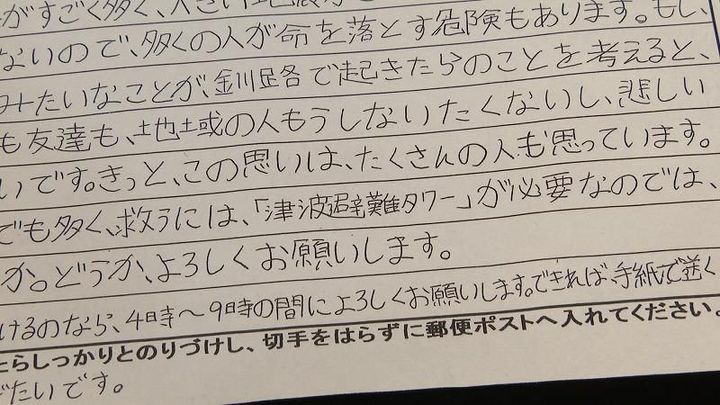 がすごく多く、大きい地震が
ないので、多くの人が命を落とす危険もあります。もし、
みたいなことが、釧路で起きたらのことを考えると、
も友達も、地域の人もうしないたくないし、悲しい
いです。きっと、この思いは、たくさんの人も思っています。
でも多く、救うには、「津波避難タワー」が必要なのでは、
か。どうか、よろしくお願いします。
けるのなら、4時〜9時の間によろしくお願いします。できれば、手紙で送く
たらしっかりとのりづけし、切手をはらずに郵便ポストへ入れてください。
たいです。